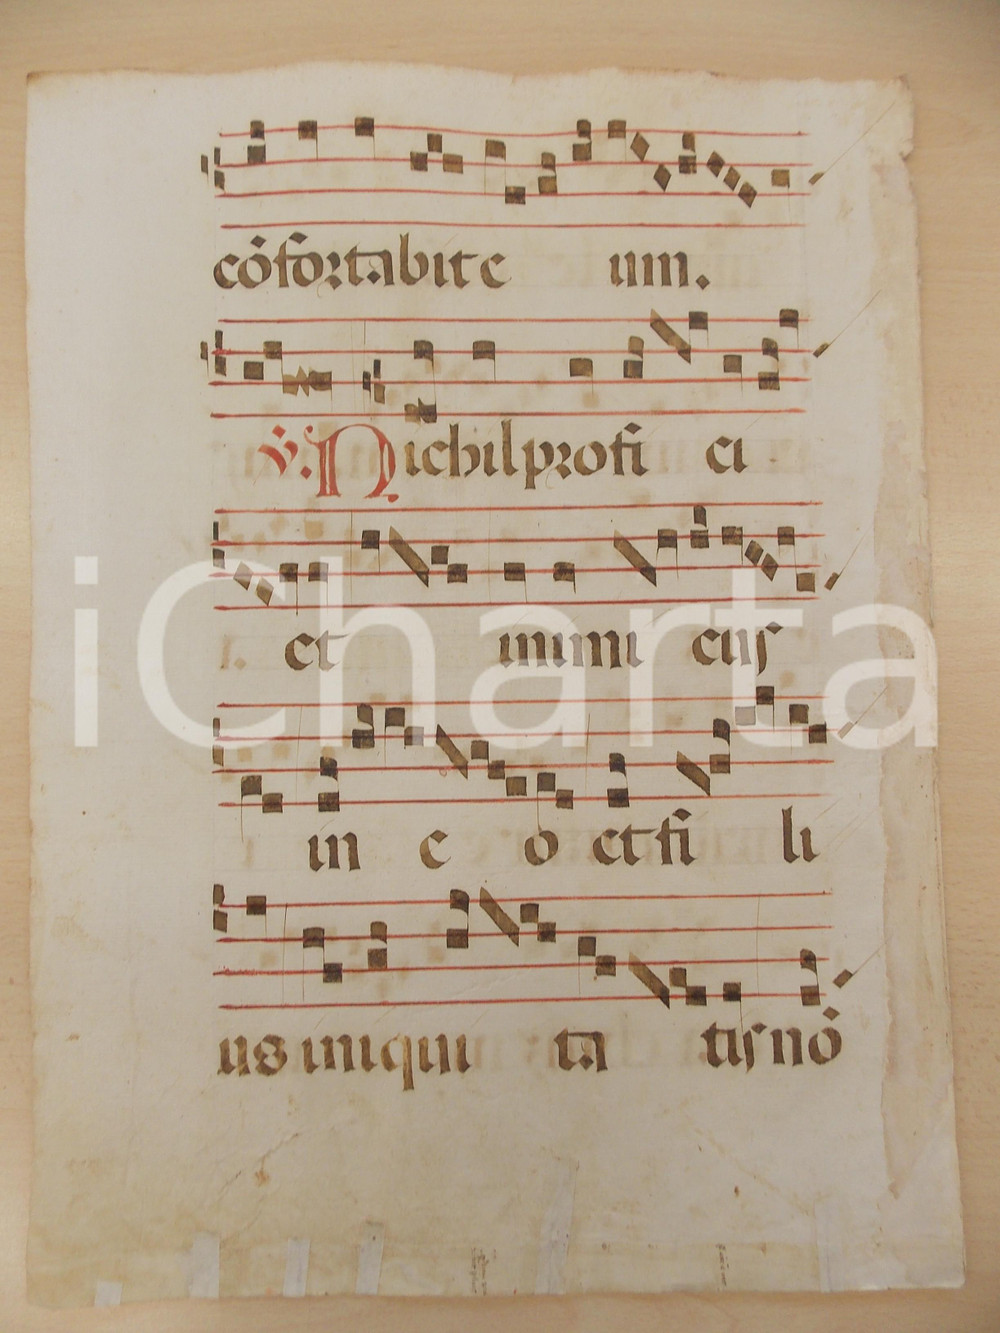 cōfortabit e um.
℣. Nichil profi ci
et inimi cus
in e o et fi li
us iniqui ta tis nō
iCharta